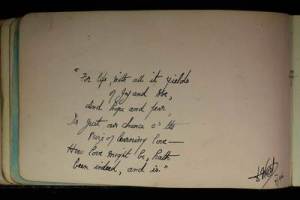 "For life, with all it yields
of joy and woe,
And hope and fear,
Is just our chance o' the
Prize of learning love—
How love might be, hath
been indeed, and is."